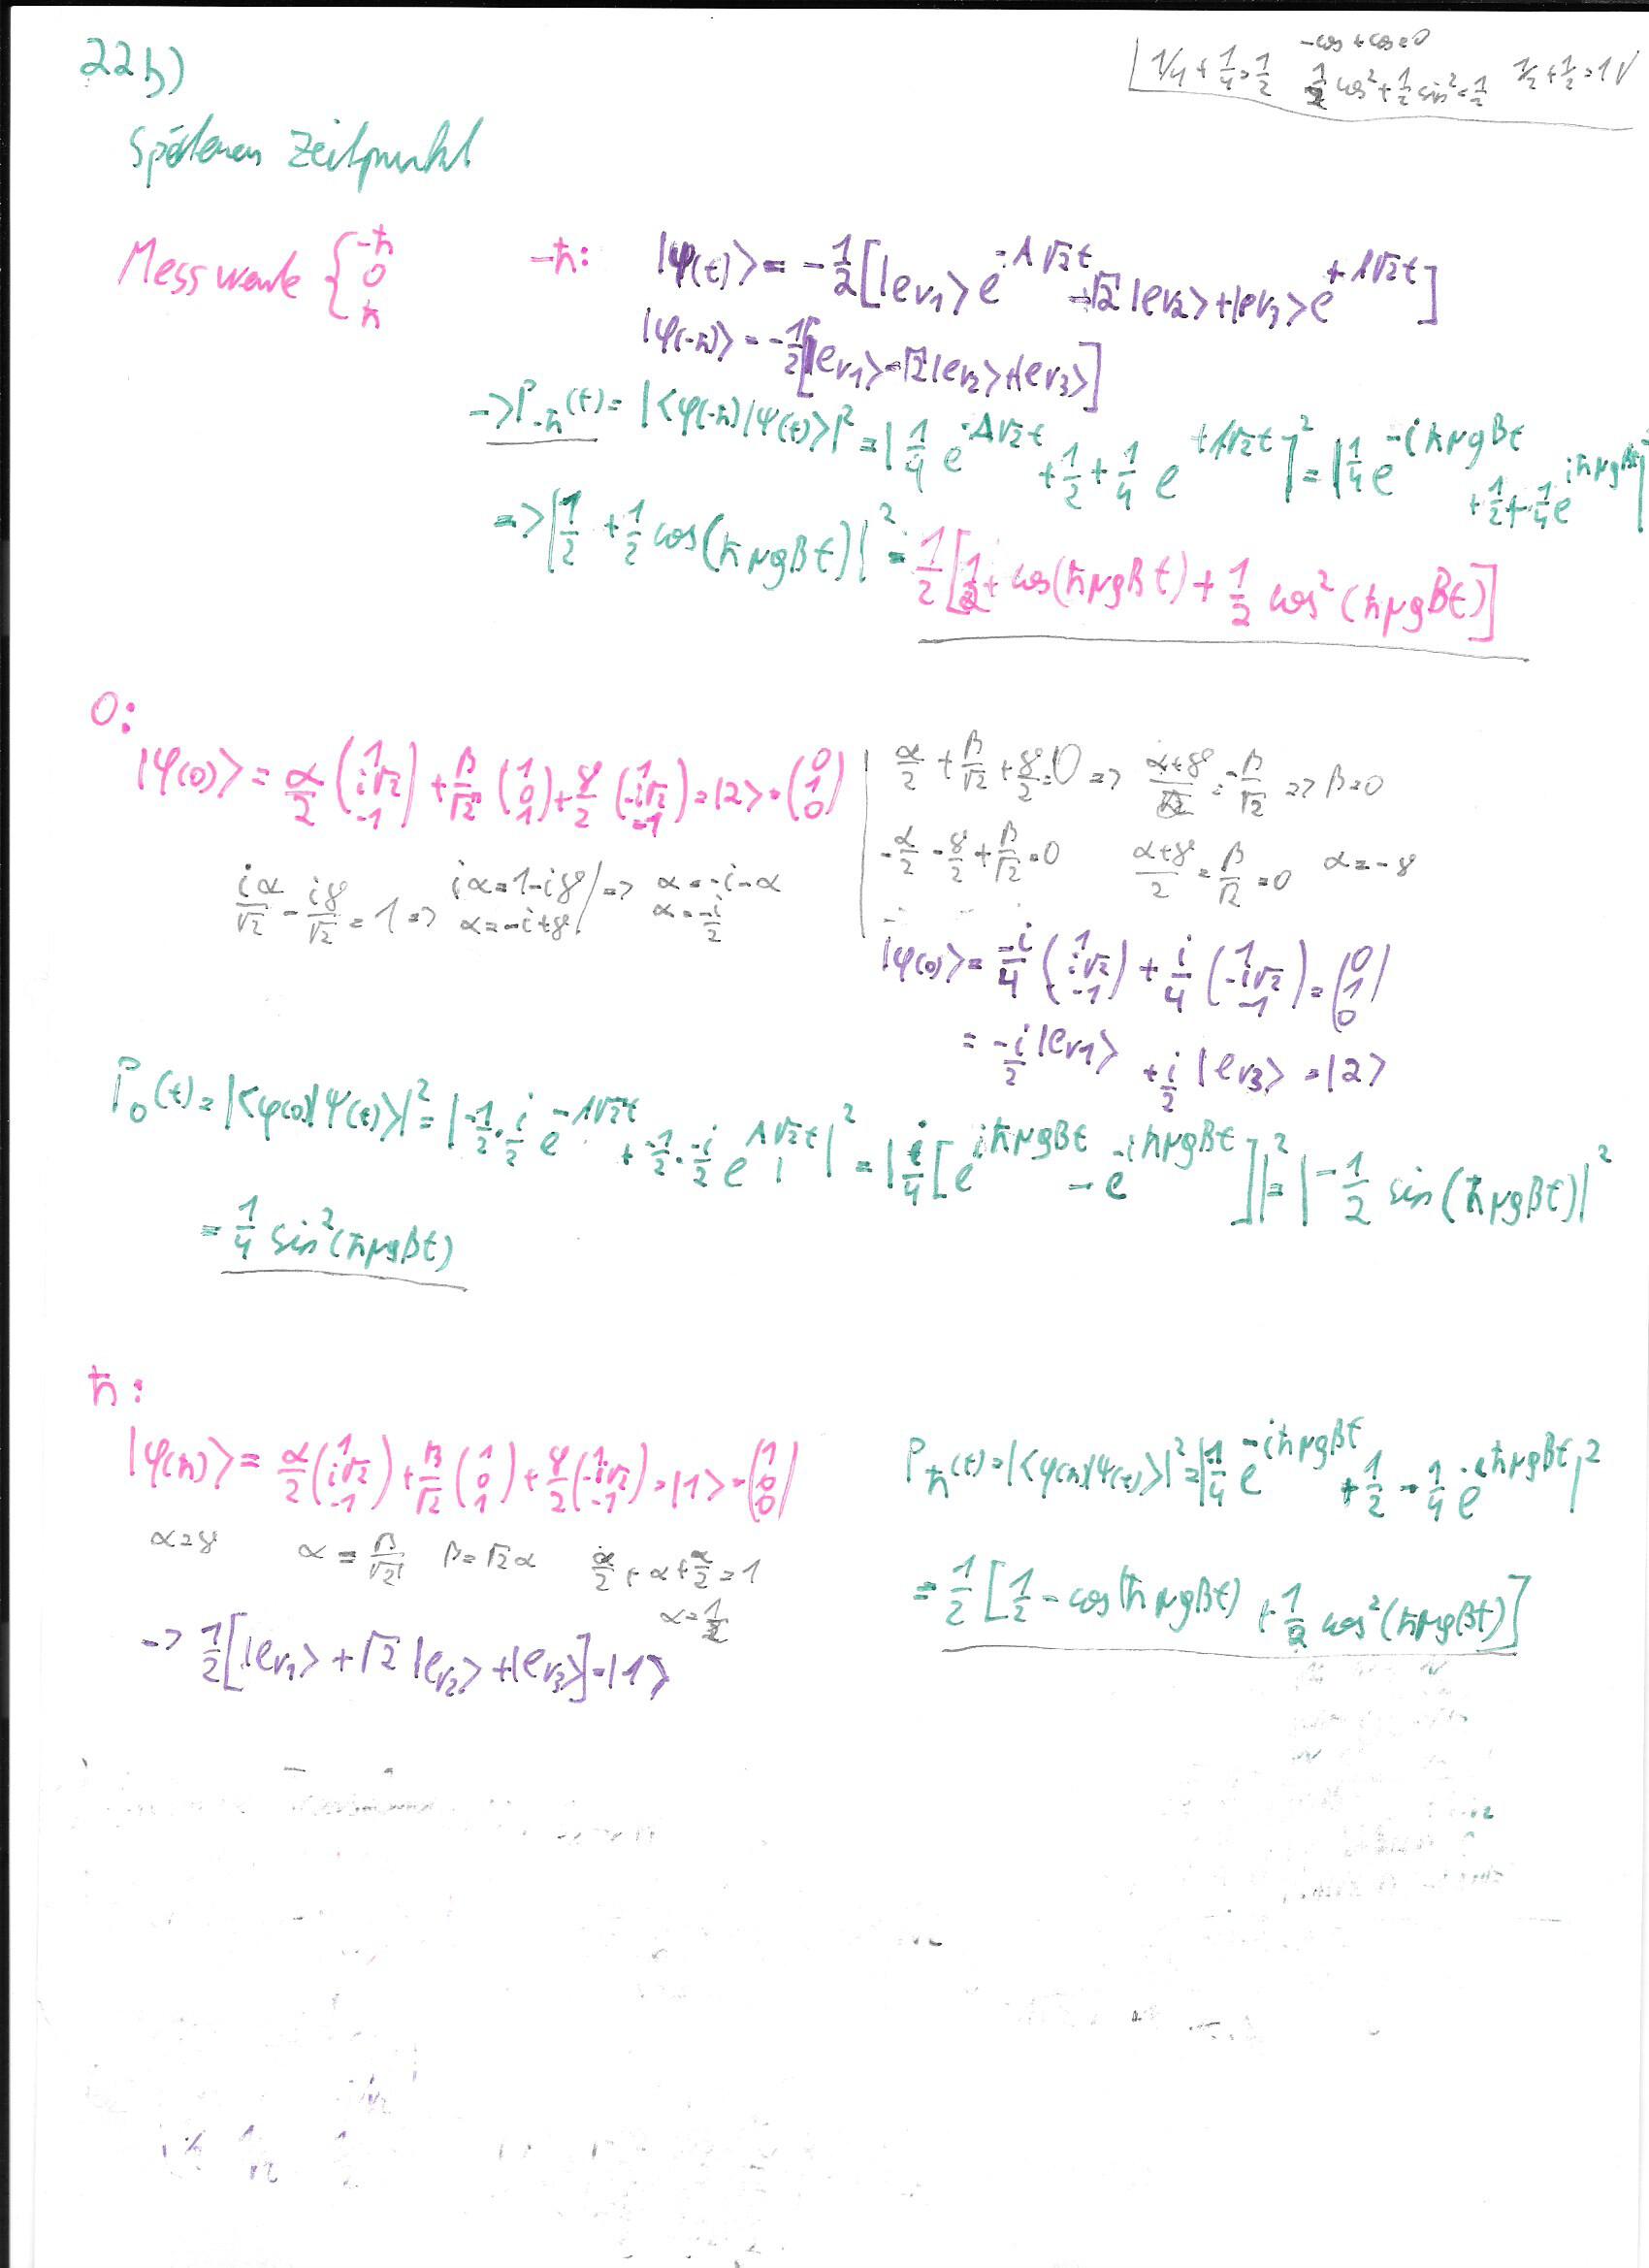 22b)
1/4 + 1/4 = 1/2   -cos + cos = 0   1/2 cos² + 1/2 sin² = 1/2   1/2 + 1/2 = 1 √
Späteren Zeitpunkt
Messwerte { -ħ 0 ħ
-ħ: |ψ(t)> = -1/2 [|ev1> e^{-Λ√2t} - √2 |ev2> + |ev3> e^{+Λ√2t}]
|φ(-ħ)> = -1/2 [|ev1> - √2 |ev2> + |ev3>]
-> P-ħ(t) = |<φ(-ħ)|ψ(t)>|² = |1/4 e^{-Λ√2t} + 1/2 + 1/4 e^{+Λ√2t}|² = |1/4 e^{-iħμgBt} + 1/2 + 1/4 e^{iħμgBt}|²
=> |1/2 + 1/2 cos(ħμgBt)|² = 1/2 [1/2 + cos(ħμgBt) + 1/2 cos²(ħμgBt)]
0:
|φ(0)> = α/2 (1 i√2 -1) + β/√2 (1 0 1) + γ/2 (1 -i√2 -1) = |2> = (0 1 0)
α/2 + β/√2 + γ/2 = 0 => α+γ/2 = -β/√2 => β = 0
-α/2 - γ/2 + β/√2 = 0   α+γ/2 = β/√2 = 0   α = -γ
iα/√2 - iγ/√2 = 1 => iα = 1 - iγ α = -i + γ / => α = -i - α α = -i/2
|φ(0)> = -i/4 (1 i√2 -1) + i/4 (1 -i√2 -1) = (0 1 0)
= -i/2 |ev1> + i/2 |ev3> = |2>
P0(t) = |<φ(0)|ψ(t)>|² = |-1/2 · i/2 e^{-Λ√2t} + -1/2 · -i/2 e^{Λ√2t}|² = |i/4 [e^{iħμgBt} - e^{-iħμgBt}]|² = |-1/2 sin(ħμgBt)|²
= 1/4 sin²(ħμgBt)
ħ:
|φ(ħ)> = α/2 (1 i√2 -1) + β/√2 (1 0 1) + γ/2 (1 -i√2 -1) = |1> = (1 0 0)
α = γ   α = β/√2   β = √2 α   α/2 + α + α/2 = 1
α = 1/2
-> 1/2 [|ev1> + √2 |ev2> + |ev3>] = |1>
Pħ(t) = |<φ(ħ)|ψ(t)>|² = |1/4 e^{-iħμgBt} + 1/2 - 1/4 e^{iħμgBt}|²
= 1/2 [1/2 - cos(ħμgBt) + 1/2 cos²(ħμgBt)]